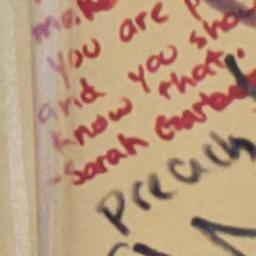 you are
and you sho
know that.
-Sarah
Preach